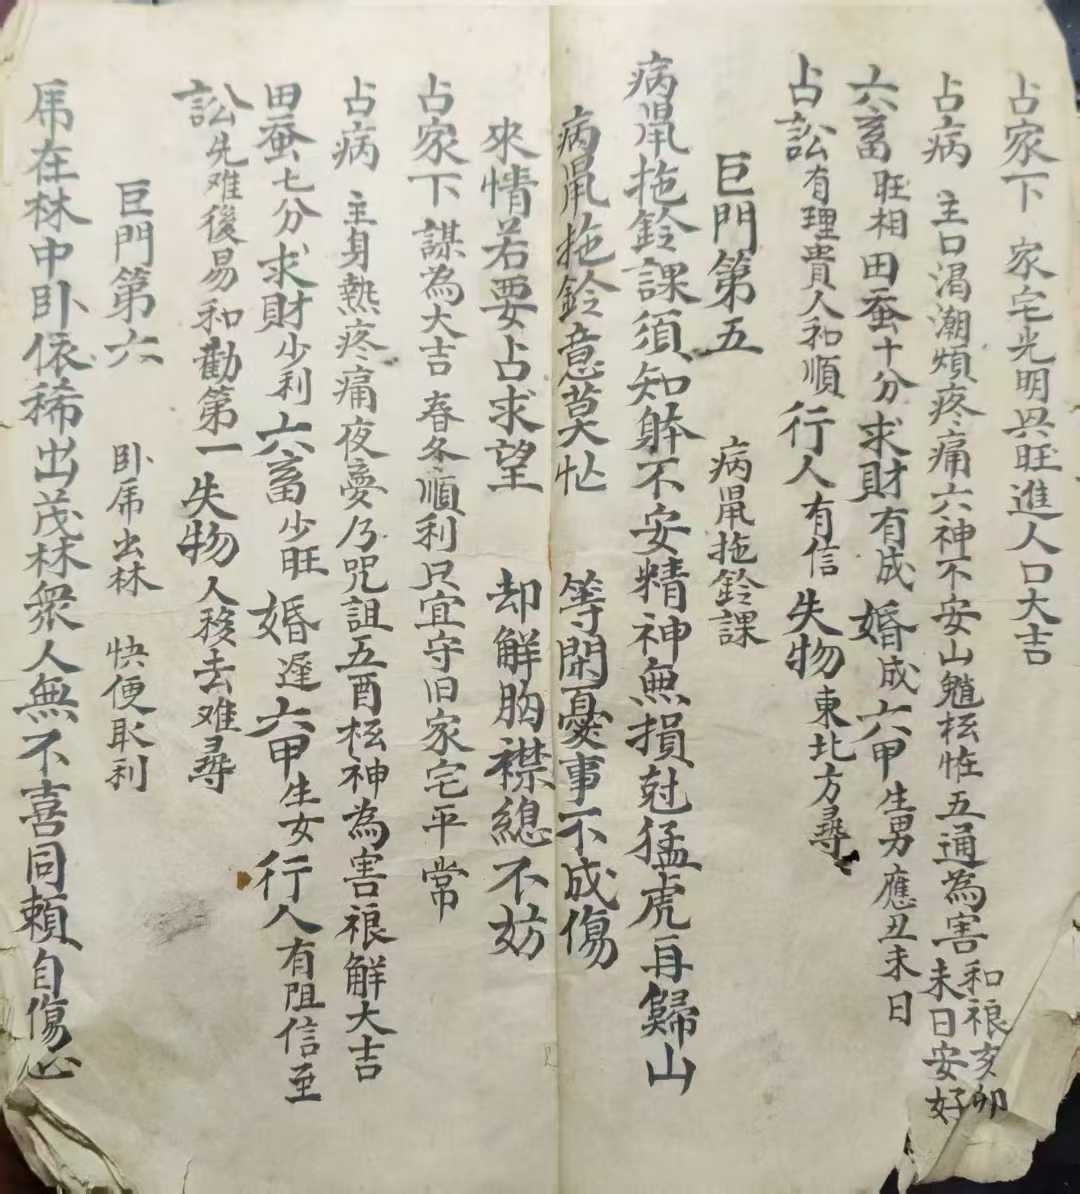 占家下 家宅光明兴旺進人口大吉
占病 主口渴潮煩疼痛六神不安山魈枉恠五通為害和禳亥卯未日安好
六畜旺相田蚕十分求財有成 婚成六甲生男應丑未日
占訟有理貴人和順行人有信 失物東北方尋
巨門第五 病鼠拖鈴課
病鼠拖鈴課須知躰不安精神無損尅猛虎再歸山
病鼠拖鈴意莫忙 等閑憂事不成傷
來情若要占求望 却解胸襟總不妨
占家下 謀為大吉 春冬順利只宜守旧家宅平常
占病 主身熱疼痛夜夢乃咒詛五酉枉神為害禳解大吉
田蚕七分求財少利六畜少旺 婚遲六甲生女行人有阻信至
訟先难後易和勸第一失物人移去难尋
巨門第六 卧虎出林 快便取利
虎在林中卧依稀出茂林衆人無不喜同賴自傷心